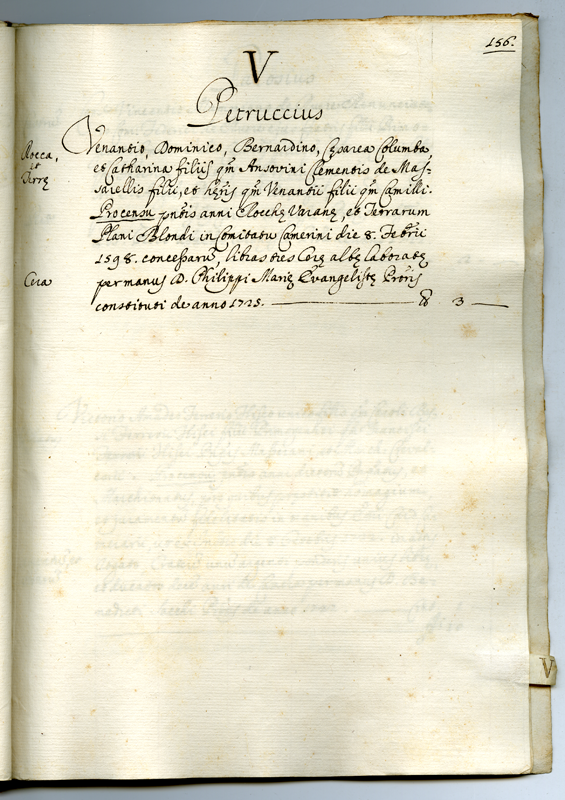 156.
V
Petruccius
Rocca,
et
Terrę
Venantio, Dominico, Bernardino, Cęsarea Columba
et Catharina filiis qm̃ Ansovini Clementis de Mas-
sarellis filii, et hęr̃is qm̃ Venantii filii qm̃ Camilli.
Pro censu pñtis anni Rocchę Varanę, et Terrarum
Plani Blondi in Comitatu Camerini die 8. Feb̃rii
1598. concessarũ, libras tres Cerę albę laboratę
Cera
per manus D. Philippi Marię Evangelistę Pror̃is
constituti de anno 1725. ℔ 3
V